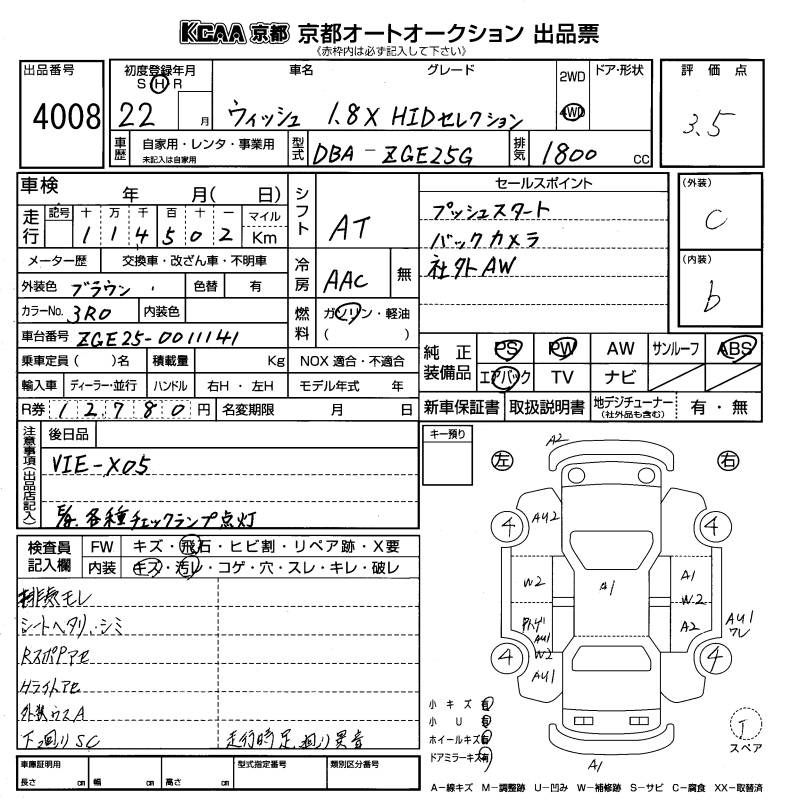 KCAA 京都 京都オートオークション 出品票
《赤枠内は必ず記入して下さい》
出品番号
4008
初度登録年月
S H R
22 月
車名 グレード
ウィッシュ 1.8X HIDセレクション
2WD
4WD
ドア・形状
評価点
3.5
車歴
自家用・レンタ・事業用
未記入は自家用
型式
DBA-ZGE25G
排気
1800 CC
車検 年 月( 日)
走行
記号 十 万 千 百 十 一 マイル
1 1 4 5 0 2 Km
シフト
AT
メーター歴 交換車・改ざん車・不明車
外装色 ブラウン 色替 有
カラーNo. 3R0 内装色
車台番号 ZGE25-0011141
冷房
AAC 無
燃料
ガソリン・軽油
( )
乗車定員 ( )名 積載量 Kg NOX 適合・不適合
輸入車 ディーラー・並行 ハンドル 右H・左H モデル年式 年
R券 12780 円 名変期限 月 日
セールスポイント
プッシュスタート
バックカメラ
社外AW
(外装)
C
(内装)
b
純正装備品
PS PW AW サンルーフ ABS
エアバック TV ナビ
新車保証書 取扱説明書 地デジチューナー 有・無
(社外品も含む)
注意事項(出品店記入)
後日品
VIE-X05
各種チェックランプ点灯
検査員記入欄
FW キズ・飛石・ヒビ割・リペア跡・X要
内装 キズ・汚レ・コゲ・穴・スレ・キレ・破レ
排気モレ
シートヘタリ、シミ
RスポPアセ
Hライトアセ
外装ウスA
下回りSC 走行時足回り異音
車庫証明用
長さ cm 幅 cm 高さ cm
型式指定番号
類別区分番号
キー預り
左 右
A2
4 AU2 4
W2 A1 A1
W2
AU1 A2 AU1
ワレ
W2
4 AU1 4
A1
小キズ 有
小U 有
ホイールキズ 有
ドアミラーキズ 有
T
スペア
A-線キズ M-調整跡 U-凹み W-補修跡 S-サビ C-腐食 XX-取替済